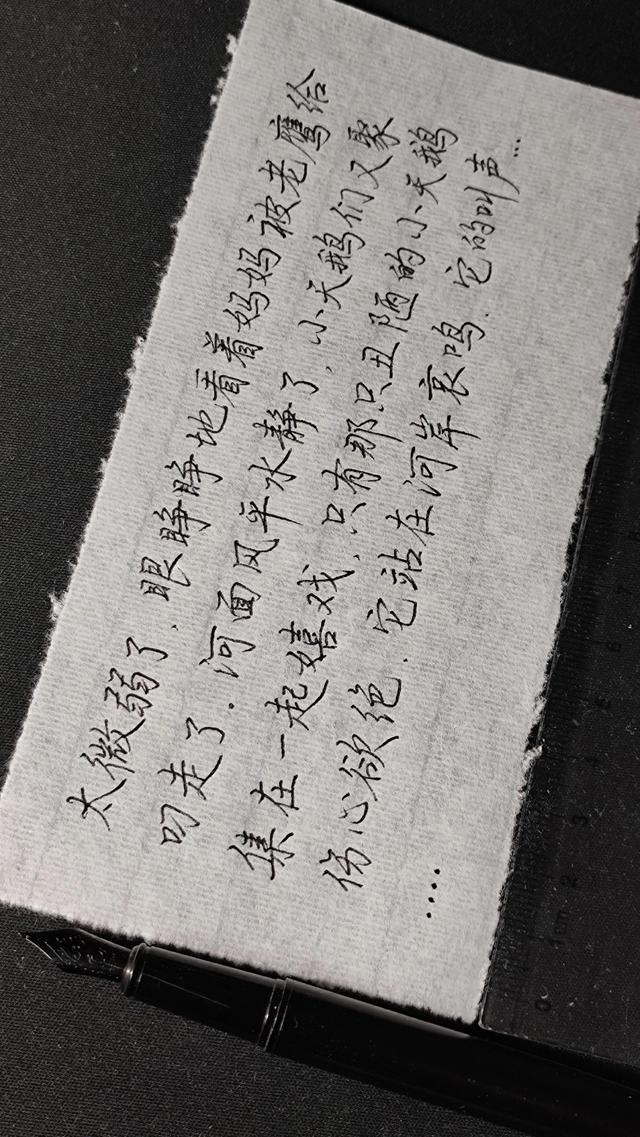 太微弱了，眼睁睁地看着妈妈被老鹰给
叼走了。河面风平水静了，小天鹅们又聚
集在一起嬉戏，只有那只丑陋的小天鹅
伤心欲绝，它站在河岸哀鸣，它的叫声…
….
0 1cm 2 3 4 5 6 7